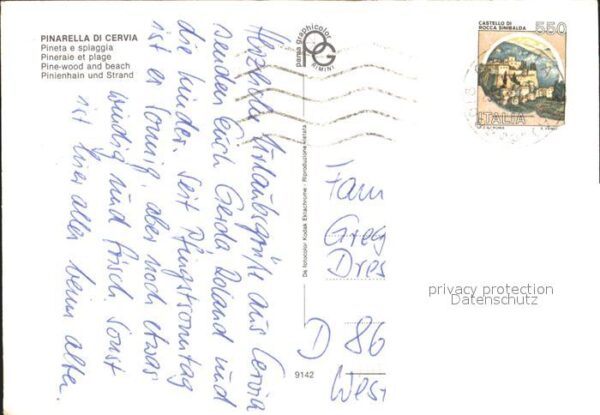 PINARELLA DI CERVIA
Pineta e spiaggia
Pineraie et plage
Pine-wood and beach
Pinienhain und Strand
Herzliche Urlaubsgrüße aus Cervia
senden Euch Gerda, Roland und
die Kinder. Seit Pfingstsonntag
ist es sonnig, aber noch etwas
windig und frisch. Sonst
ist hier alles beim alten.
parma graphicolor
RIMINI
De fotocolor Kodak Ektachrome - Riproduzione vietata
9142
CASTELLO DI
ROCCA SINIBALDA
550
ITALIA
Fam
Greg
Dres
D 86
West
privacy protection
Datenschutz